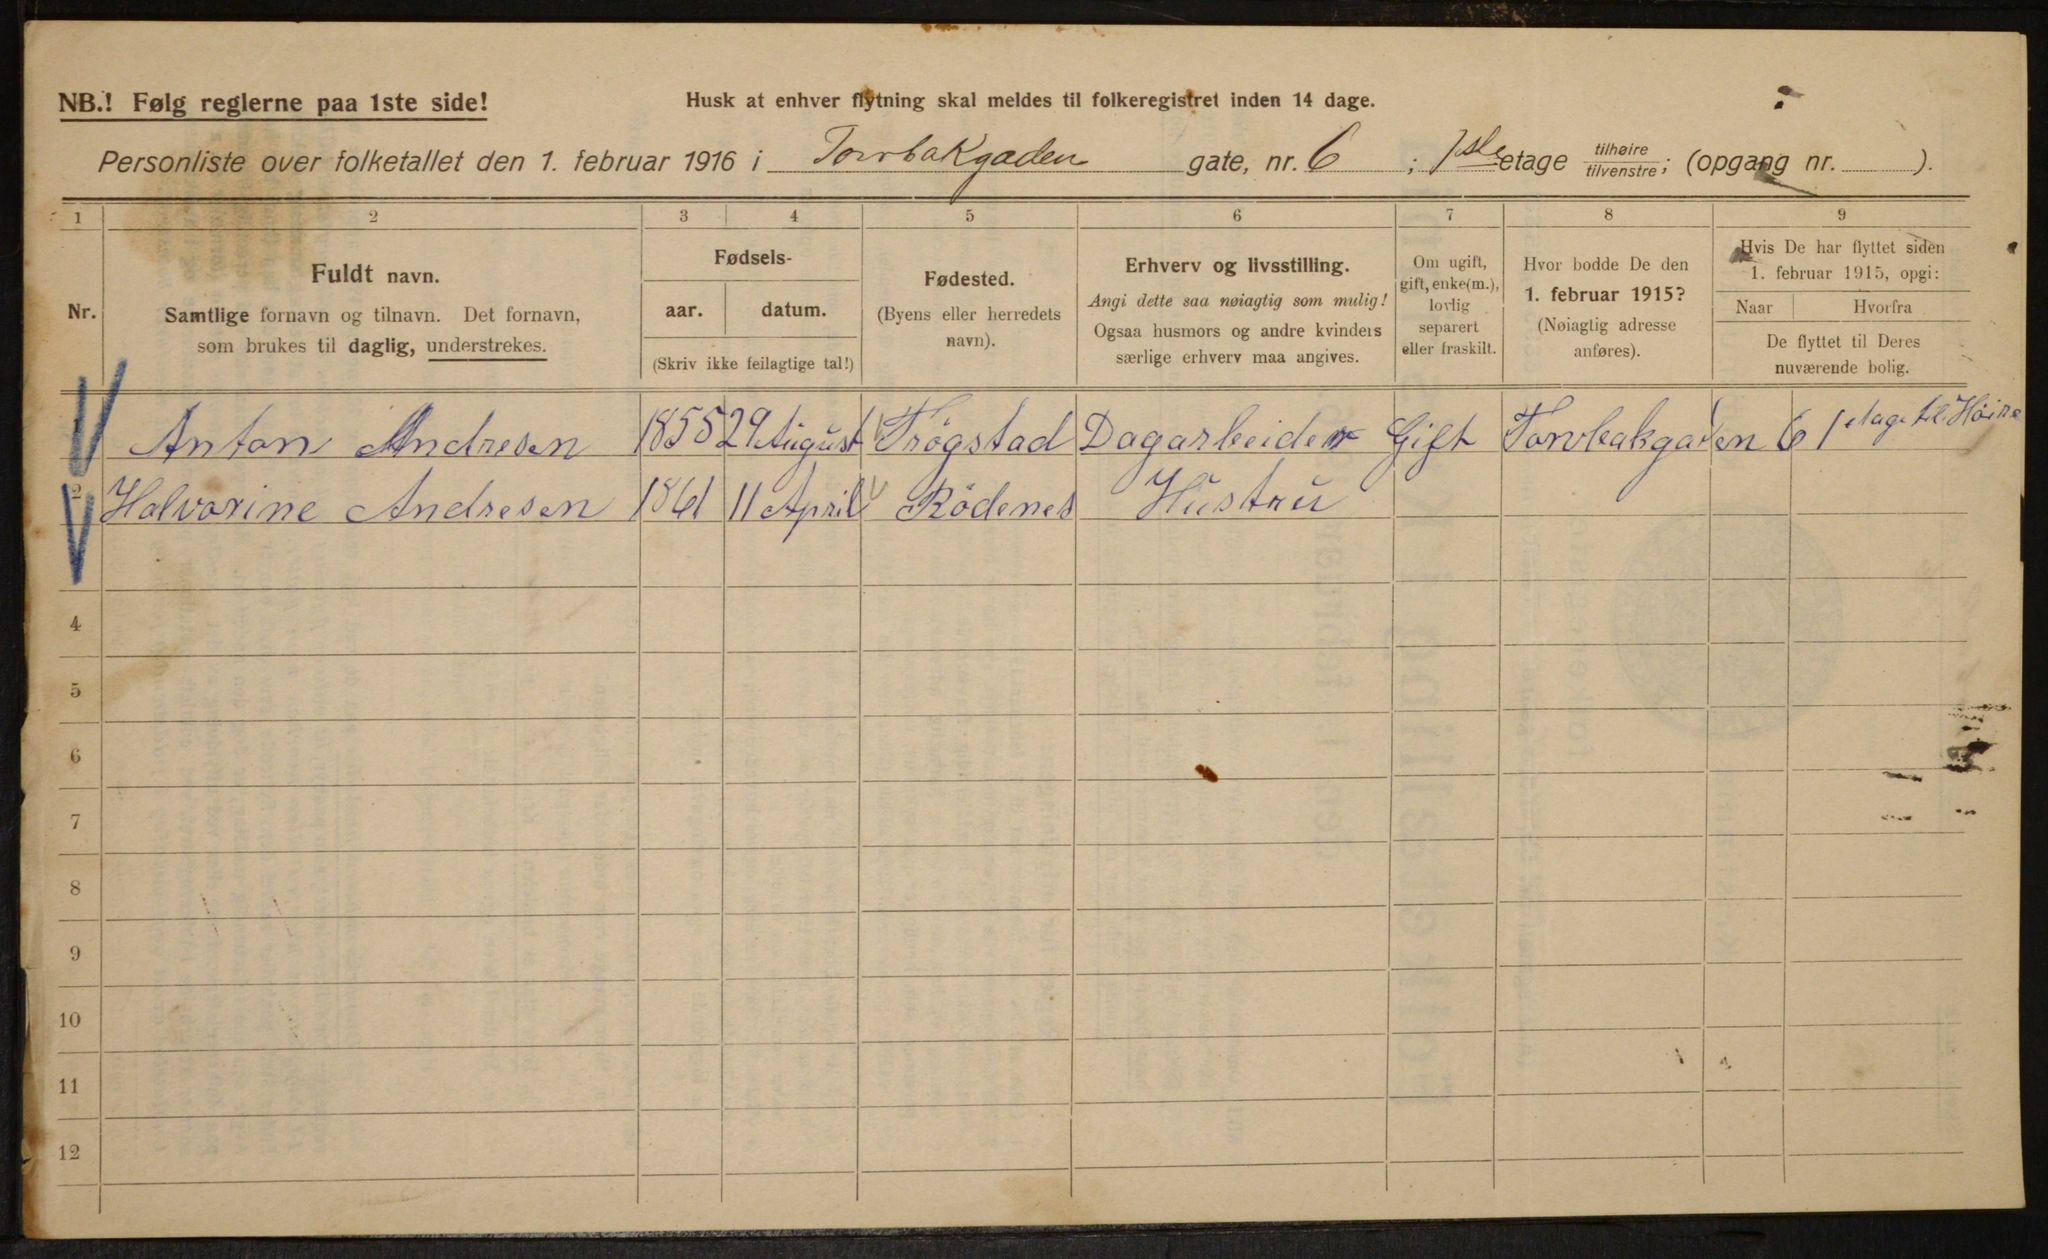 NB.! Følg reglerne paa 1ste side!
Husk at enhver flytning skal meldes til folkeregistret inden 14 dage.
Personliste over folketallet den 1. februar 1916 i Torvbakgaden gate, nr. 6 ; 1ste etage tilhøire tilvenstre; (opgang nr. ).
1 2 3 4 5 6 7 8 9
Nr.
Fuldt navn.
Samtlige fornavn og tilnavn. Det fornavn,
som brukes til daglig, understrekes.
Fødsels-
aar. datum.
(Skriv ikke feilagtige tal!)
Fødested.
(Byens eller herredets
navn).
Erhverv og livsstilling.
Angi dette saa nøiagtig som mulig!
Ogsaa husmors og andre kvinders
særlige erhverv maa angives.
Om ugift,
gift, enke(m.),
lovlig
separert
eller fraskilt.
Hvor bodde De den
1. februar 1915?
(Nøiagtig adresse
anføres).
Hvis De har flyttet siden
1. februar 1915, opgi:
Naar Hvorfra
De flyttet til Deres
nuværende bolig.
Anton Andresen 1855 29 August Trögstad Dagarbeider Gift Torvbakgaden 6 1 etage til Höire
2 Halvorine Andresen 1861 11 April Rödenes Hustru
4
5
6
7
8
9
10
11
12